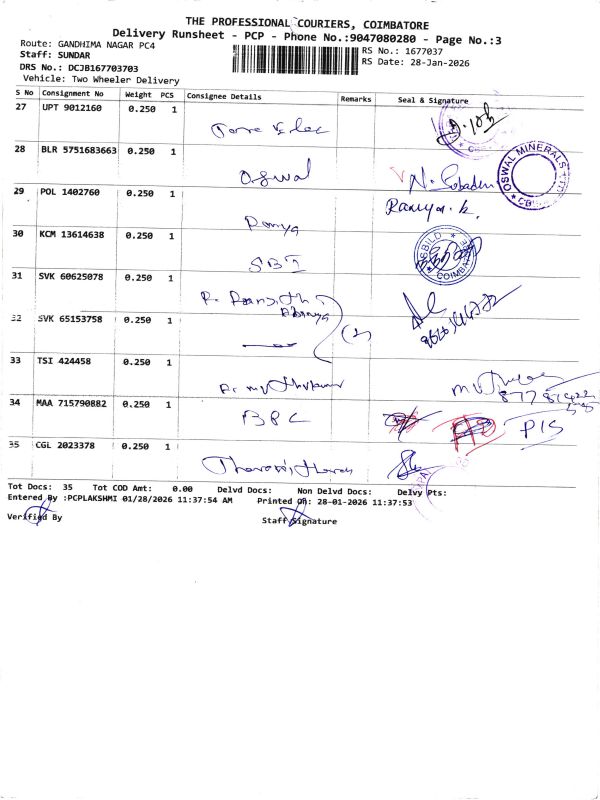 THE PROFESSIONAL COURIERS, COIMBATORE
Delivery Runsheet - PCP - Phone No.:9047080280 - Page No.:3
Route: GANDHIMA NAGAR PC4
RS No.: 1677037
Staff: SUNDAR
RS Date: 28-Jan-2026
DRS No.: DCJB167703703
Vehicle: Two Wheeler Delivery
S No Consignment No Weight PCS Consignee Details Remarks Seal & Signature
27 UPT 9012160 0.250 1
28 BLR 5751683663 0.250 1
Oswal
OSWAL MINERALS
29 POL 1402760 0.250 1
Ramya Ramya.k.
30 KCM 13614638 0.250 1
SBI
COIMBATORE
31 SVK 60625078 0.250 1
32 SVK 65153758 0.250 1
(2)
33 TSI 424458 0.250 1
34 MAA 715790882 0.250 1
BPC
35 CGL 2023378 0.250 1
Tot Docs: 35 Tot COD Amt: 0.00 Delvd Docs: Non Delvd Docs: Delvy Pts:
Entered By :PCPLAKSHMI 01/28/2026 11:37:54 AM Printed On: 28-01-2026 11:37:53
Verified By
Staff Signature